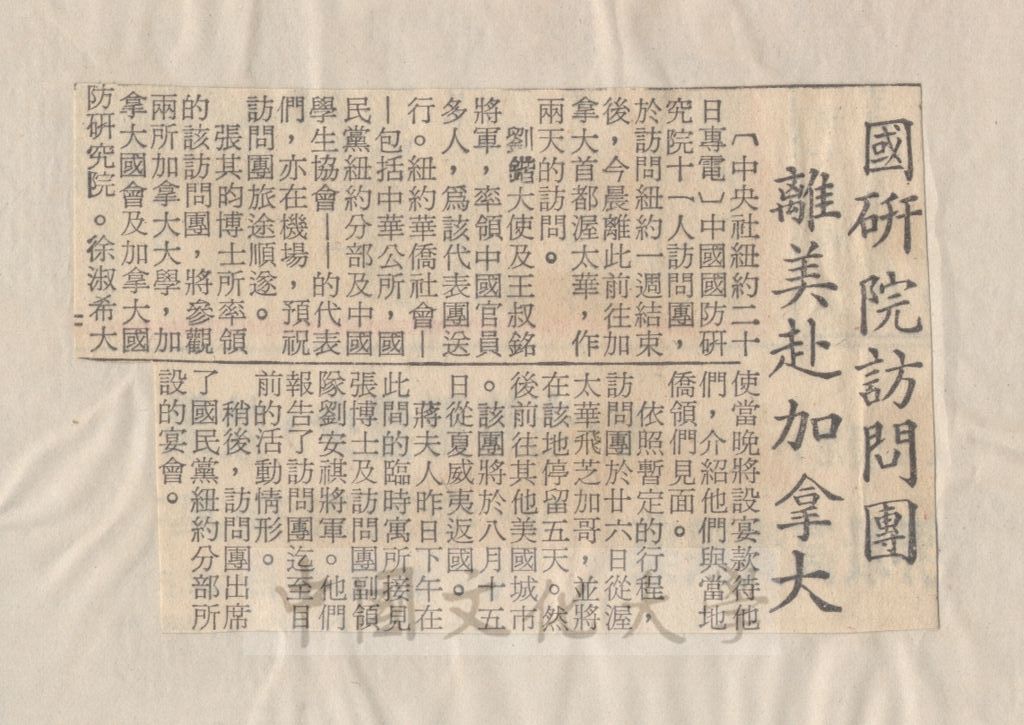 國硏院訪問團
離美赴加拿大
〔中央社紐約二十
日專電〕中國國防硏
究院十一人訪問團，
於訪問紐約一週結束
後，今晨離此前往加
拿大首都渥太華，作
兩天的訪問。
劉鍇大使及王叔銘
將軍，率領中國官員
多人，爲該代表團送
行。紐約華僑社會—
—包括中華公所，國
民黨紐約分部及中國
學生協會——的代表
們，亦在機場，預祝
訪問團旅途順遂。
張其昀博士所率領
的該訪問團，將參觀
兩所加拿大大學，加
拿大國會及加拿大國
防硏究院。徐淑希大
使當晚將設宴款待他
們，介紹他們與當地
僑領們見面。
依照暫定的行程，
訪問團於廿六日從渥
太華飛芝加哥，並將
在該地停留五天。然
後前往其他美國城市
。該團將於八月十五
日從夏威夷返國。
蔣夫人昨日下午在
此間的臨時寓所接見
張博士及訪問團副領
隊劉安祺將軍。他們
報告了訪問團迄至目
前的活動情形。
稍後，訪問團出席
了國民黨紐約分部所
設的宴會。
中國文化大學